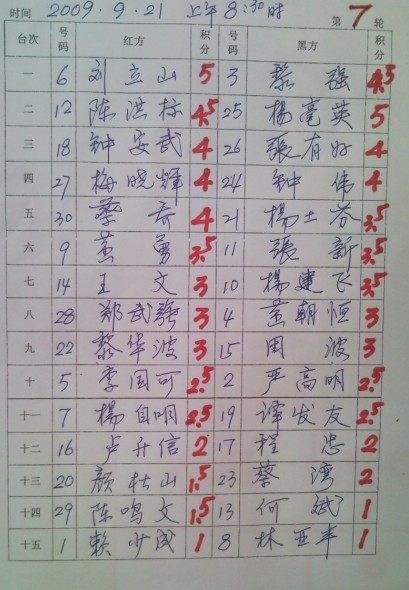 时间 2009.9.21 上午8:30时 第7轮
台次 号码 红方 积分 号码 黑方 积分
一 6 刘立山 5 3 黎强 4.5
二 12 陈洪标 4.5 25 楊毫英 5
三 18 钟安武 4 26 張有好 4
四 27 梅晓輝 4 24 钟伟 4
五 30 蔡奇 4 21 楊士芬 3.5
六 9 黄勇 3.5 11 張新 3.5
七 14 王文 3 10 楊建飞 3.5
八 28 郑武强 3 4 黄朝恒 3
九 22 黎华波 3 15 周波 3
十 5 李国可 2.5 2 严高明 2.5
十一 7 楊自明 2.5 19 譚发友 2.5
十二 16 卢升信 2 17 程忠 2
十三 20 颜壮山 1.5 23 蔡湾 2
十四 29 陈鸣文 1.5 13 何斌 1
十五 1 赖少成 1 8 林亚丰 1